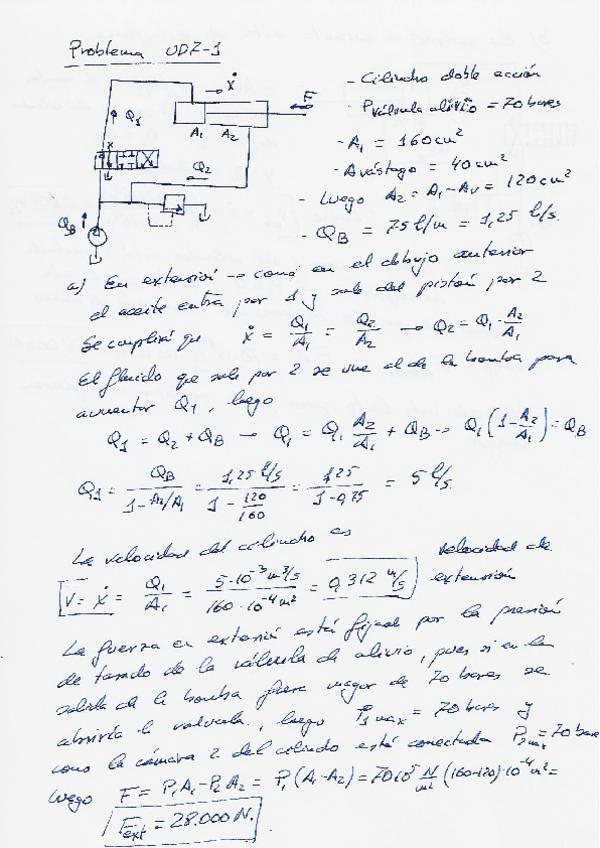 Problema UD2-1
ẋ
F
A₁ A₂
Q₁
Q₂
Q_B
- Cilindro doble acción
- Pválvula alivio = 70 bares
- A₁ = 160 cm²
- Avástago = 40 cm²
- Luego A₂ = A₁ - Av = 120 cm²
- Q_B = 75 l/m = 1,25 l/s.
a) En extensión → como en el dibujo anterior
el aceite entra por 1 y sale del pistón por 2
Se cumplirá que ẋ = Q₁/A₁ = Q₂/A₂ → Q₂ = Q₁ · A₂/A₁
El fluido que sale por 2 se une al de la bomba para
aumentar Q₁, luego
Q₁ = Q₂ + Q_B → Q₁ = Q₁ A₂/A₁ + Q_B → Q₁(1 - A₂/A₁) = Q_B
Q₁ = Q_B/(1 - A₂/A₁) = 1,25 l/s/(1 - 120/160) = 1,25/(1 - 0,75) = 5 l/s.
La velocidad del cilindro es
V = ẋ = Q₁/A₁ = 5·10⁻³ m³/s/(160·10⁻⁴ m²) = 0,312 m/s velocidad de extensión
La fuerza en extensión está fijada por la presión
de tarado de la válvula de alivio, pues si en la
salida de la bomba fuera mayor de 70 bares se
abriría la valvula, luego P₁max = 70 bares y
como la cámara 2 del cilindro está conectada P₂max = 70 bares
luego F = P₁A₁ - P₂A₂ = P₁(A₁-A₂) = 70·10⁵ N/m² (160-120)·10⁻⁴ m² =
Fext = 28.000 N.